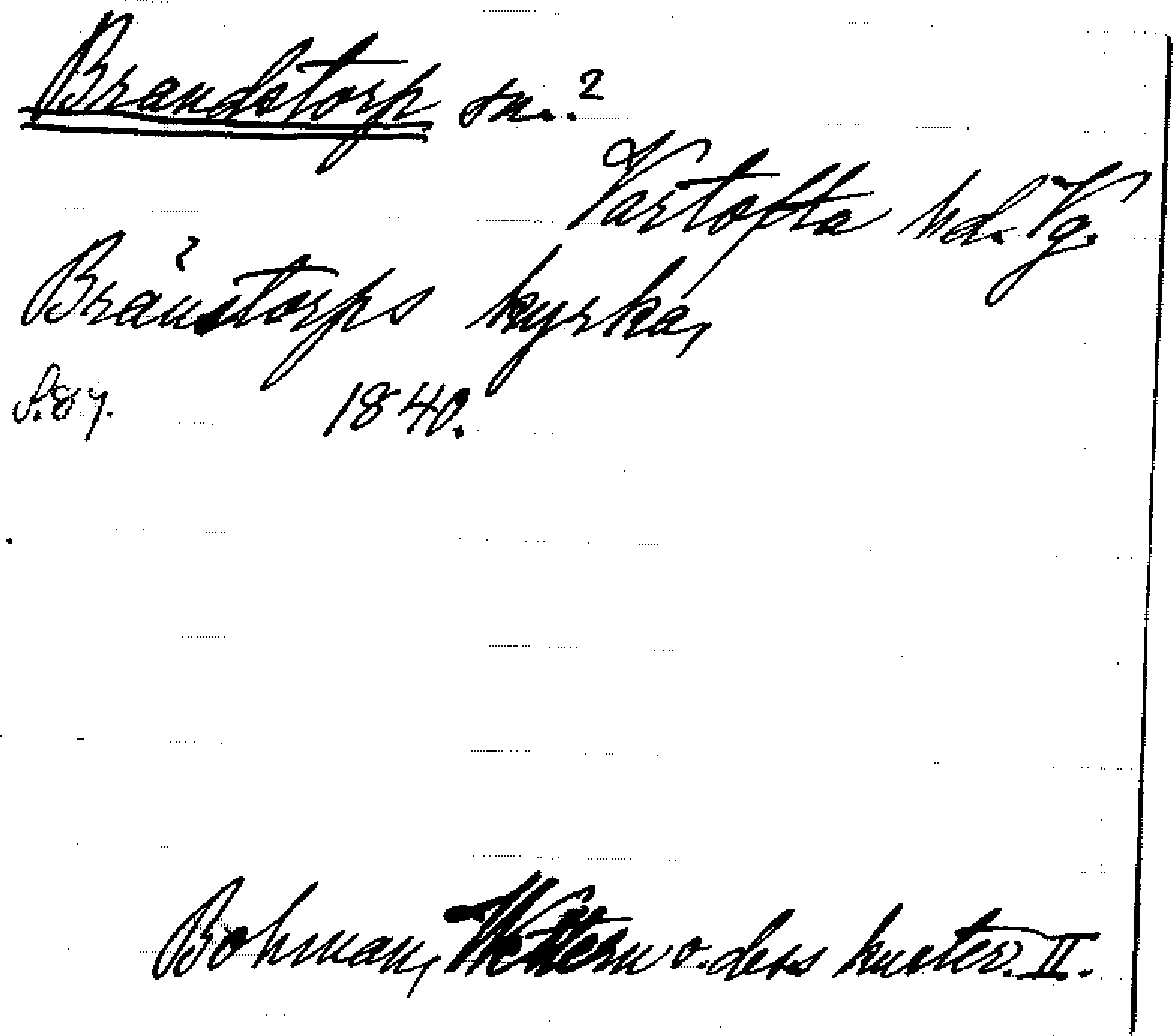 Brandstorp sn.?
Vartofta hd. Vg.
Branstorps kyrka,
S. 87. 1840.
Bohman, Wettern o. dess kuster. II.